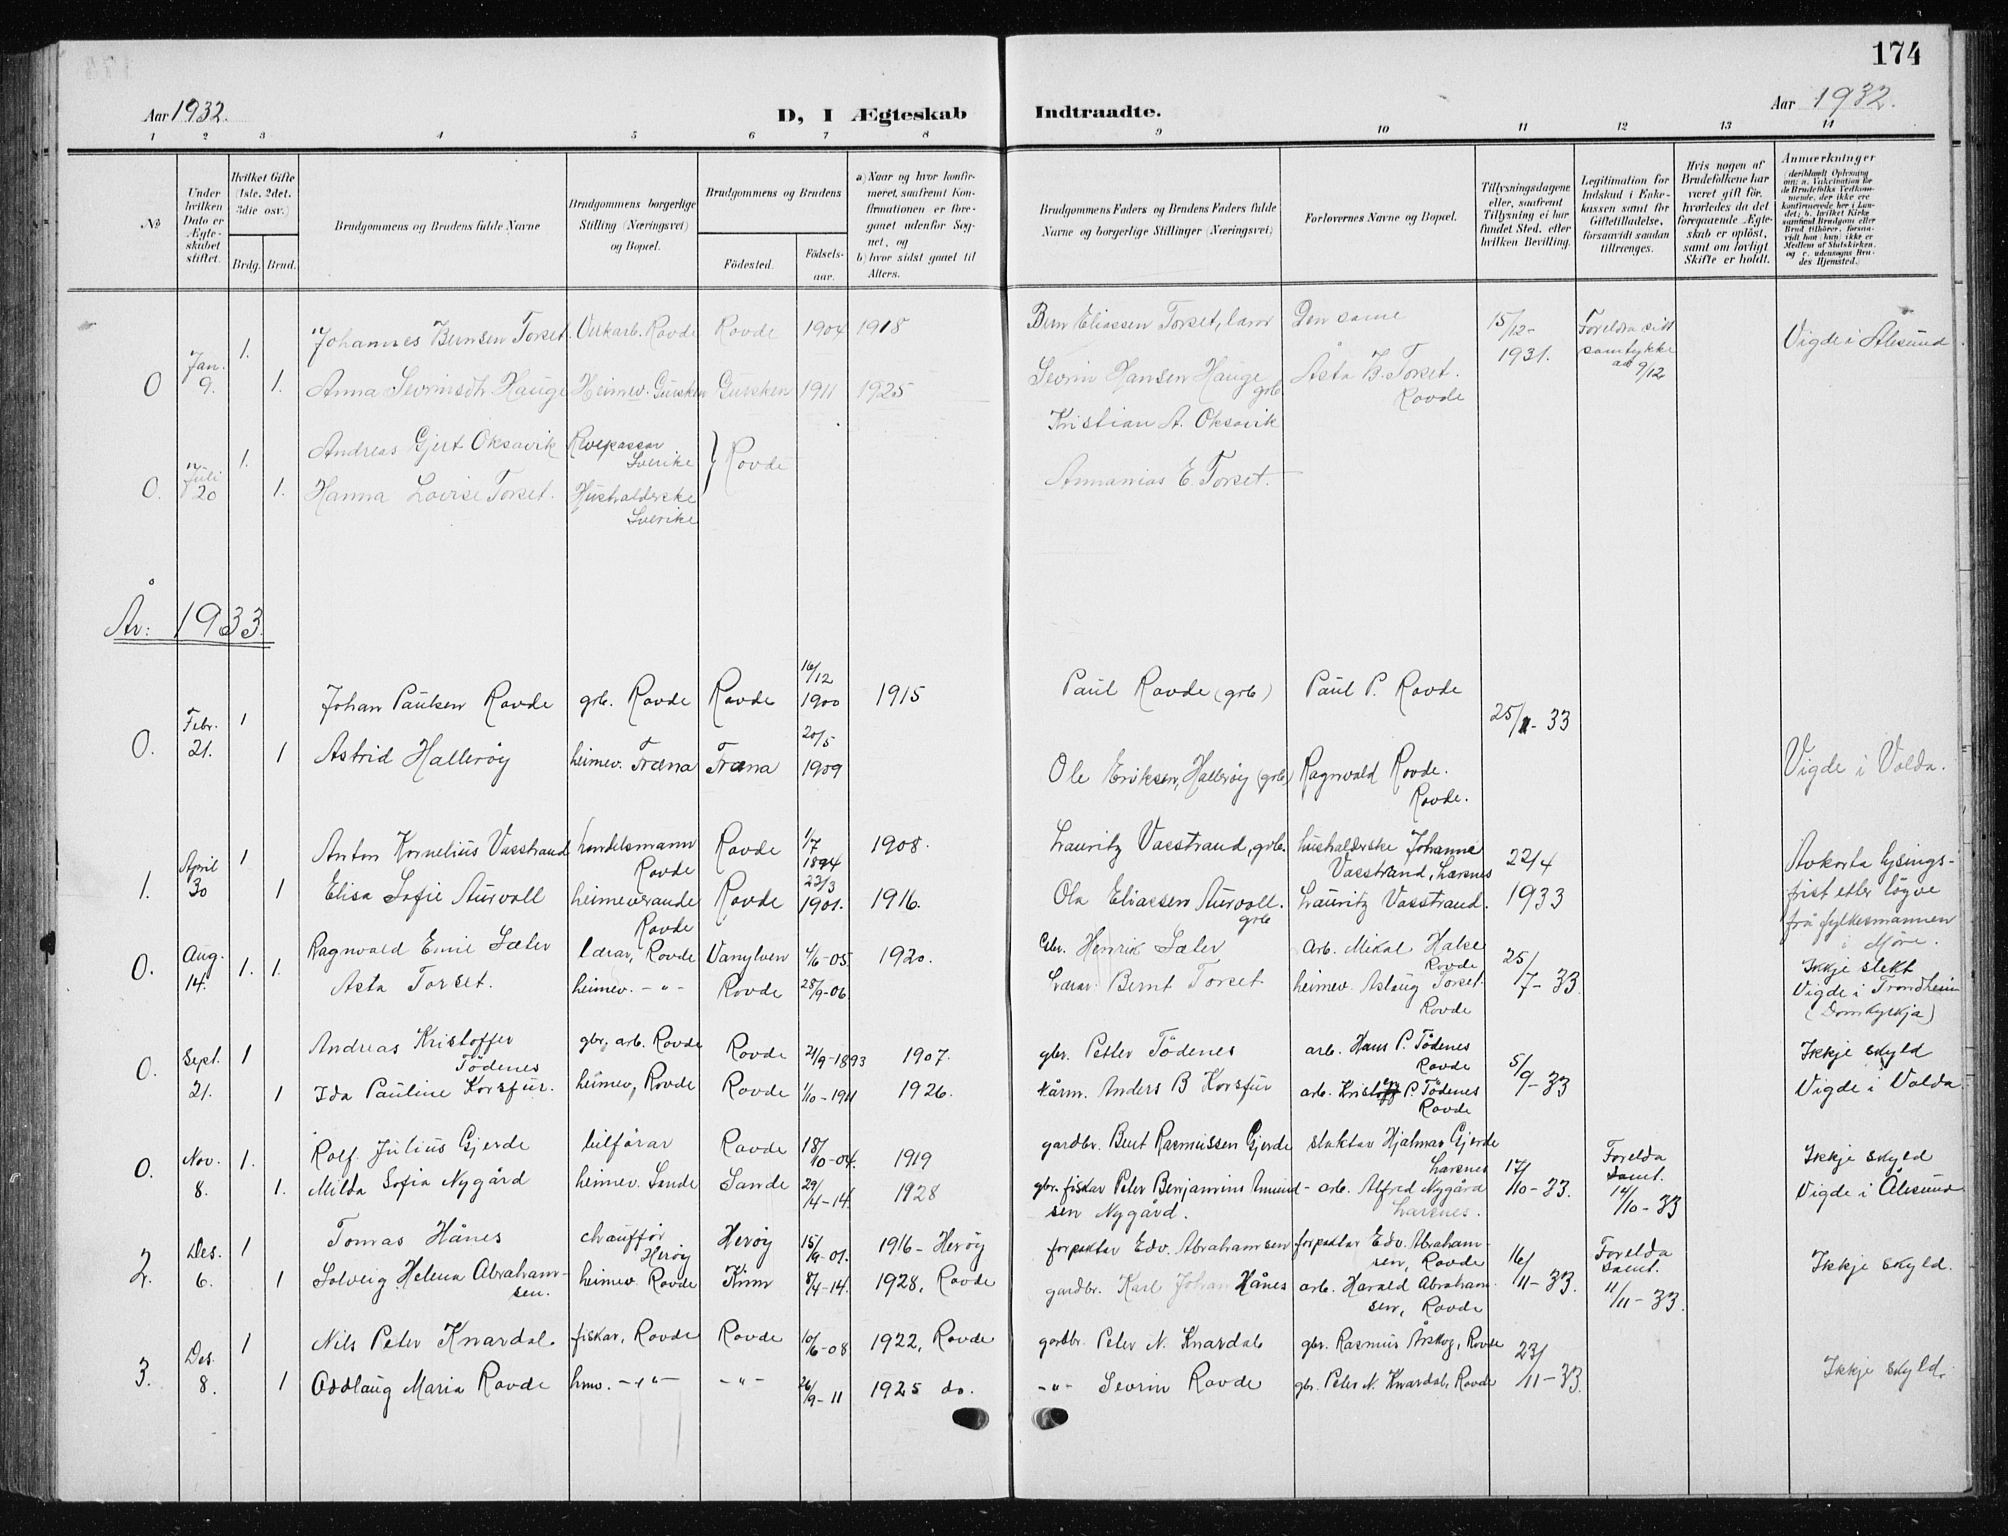 174
Aar 1932.
D, I Ægteskab Indtraadte.
Aar 1932.
1 2 3 4 5 6 7 8 9 10 11 12 13 14
No
Under hvilken Dato er Ægteskabet stiftet.
Hvilket Gifte (1ste, 2det, 3die osv.)
Brdg. Brud.
Brudgommens og Brudens fulde Navne
Brudgommens borgerlige Stilling (Næringsvei) og Bopæl.
Brudgommens og Brudens
Fødested.
Fødsels-aar.
a) Naar og hvor konfirmeret, saafremt Konfirmationen er foregaaet udenfor Sognet, og
b) hvor sidst gaaet til Alters.
Brudgommens Faders og Brudens Faders fulde Navne og borgerlige Stillinger (Næringsvei)
Forlovernes Navne og Bopæl.
Tillysningsdagene eller, saafremt Tillysning ei har fundet Sted, efter hvilken Bevilling.
Legitimation for Indskud i Enkekassen samt for Giftetilladelse, forsaavidt saadan tiltrænges.
Hvis nogen af Brudefolkene har været gift før, hvorledes da det foregaaende Ægteskab er opløst, samt om lovligt Skifte er holdt.
Anmærkninger
(deriblandt Oplysning om: a. Vakcination for de Brudefolks Vedkommende, der ikke ere konfirmerede her i Landet; b. hvilket Kirkesamfund Brudgom eller Brud tilhører, forsaavidt han (hun) ikke er Medlem af Statskirken, og c. udensogns Brudes Hjemsted.)
Johannes Bernsen Torset. Verkarb. Rovde Rovde 1904 1918 Bern Eliassen Torset, lærer Den same 15/12- 1931. Foreldra sitt samtykke av 9/12 Vigde i Ålesund
0 Jan. 9. 1. 1. Anna Sevrinsdtr. Hauge Heimev. Gursken Gursken 1911 1925 Sevrin Hansen Hauge grb. Åsta B. Torset. Rovde
Andreas Gjert Oksavik Revepassar Sverike Rovde Kristian A. Oksavik
0. Juli 20 1. 1. Hanna Lovise Torset. Hushalderske Sverike Annanias E. Torset.
År: 1933.
Johan Paulsen Rovde grb. Rovde Rovde 16/12 1900 1915 Paul Rovde (grb) Paul P. Rovde 25/1-33
0. Febr. 21. 1 1 Astrid Hallerøy heimev. Fræna Fræna 20/5 1909 Ole Eriksen, Hallerøy (grb) Ragnvald Rovde. Rovde. Vigde i Volda.
Anton Kornelius Vasstrand handelsmann Rovde Rovde 1/7 1894 1908. Lauritz Vasstrand, grb. hushalderske Johanne Vasstrand, Larsnes 22/4 1933
1. April 30 1 1 Elisa Sofie Aurvoll heimeverande Rovde Rovde 23/3 1901. 1916. Ola Eliassen Aurvoll. grb Lauritz Vasstrand. Avkorta lysings-frist etter løyve frå fylkesmannen i Møre.
0. Aug. 14. 1. 1. Ragnvald Emil Sæler lærar, Rovde Vanylven 4/6-05 1920. Gbr. Henrik Sæler Arb. Mikal Hake Rovde 25/7-33. Ikkje slekt
Asta Torset. heimev. -"- Rovde 28/9-06. Lærar Bernt Torset heimev. Aslaug Torset Rovde Vigde i Trondheim (Domkyrkja)
Andreas Kristoffer Tødenes gbr, arb. Rovde Rovde 21/9-1893 1907. gbr. Petter Tødenes arb. Hans P. Tødenes Rovde 5/9-33 Ikkje skyld
0. Sept. 21. 1 1 Ida Pauline Korsfur. heimev, Rovde Rovde 1/10-1911 1926. kårm. Anders B Korsfur arb. Kristoff P. Tødenes Rovde Vigde i Volda
Rolf Julius Gjerde bilførar Rovde 18/10-04. 1919 gardbr. Bent Rasmussen Gjerde slaktar Hjalmar Gjerde Larsnes 17/10-33. Forelda samt. 12/10-33 Ikkje skyld
0. Nov. 8. 1. 1. Milda Sofia Nygård heimev. Sande Sande 29/4-14. 1928 gbr. fiskar Peter Benjamins Amundsen Nygård. arb. Alfred Nygård Larsnes. Vigde i Ålesund
Tomas Hånes chauffør Herøy Herøy 15/9-01. 1916-Herøy forpaktar Edv. Abrahamsen forpaktar Edv. Abrahamsen, Rovde 16/11-33. Forelda samt. 11/11-33. Ikkje skyld.
2. Des. 6. 1 1 Solveig Helena Abrahamsen. heimev. Rovde 8/4-14. 1928, Rovde gardbr. Karl Johan Hånes arb. Harald Abrahamsen, Rovde
Nils Peter Knardal fiskar, Rovde Rovde 10/6-08 1922, Rovde gardbr. Peter N. Knardal gbr. Rasmus Årskog, Rovde 23/11-33. Ikkje skyld.
3. Des. 8. 1 1 Oddlaug Maria Rovde hmv. -"- -"- 26/9-11 1925 do. -"- Sevrin Rovde gbr. Peter N. Knardal, Rovde